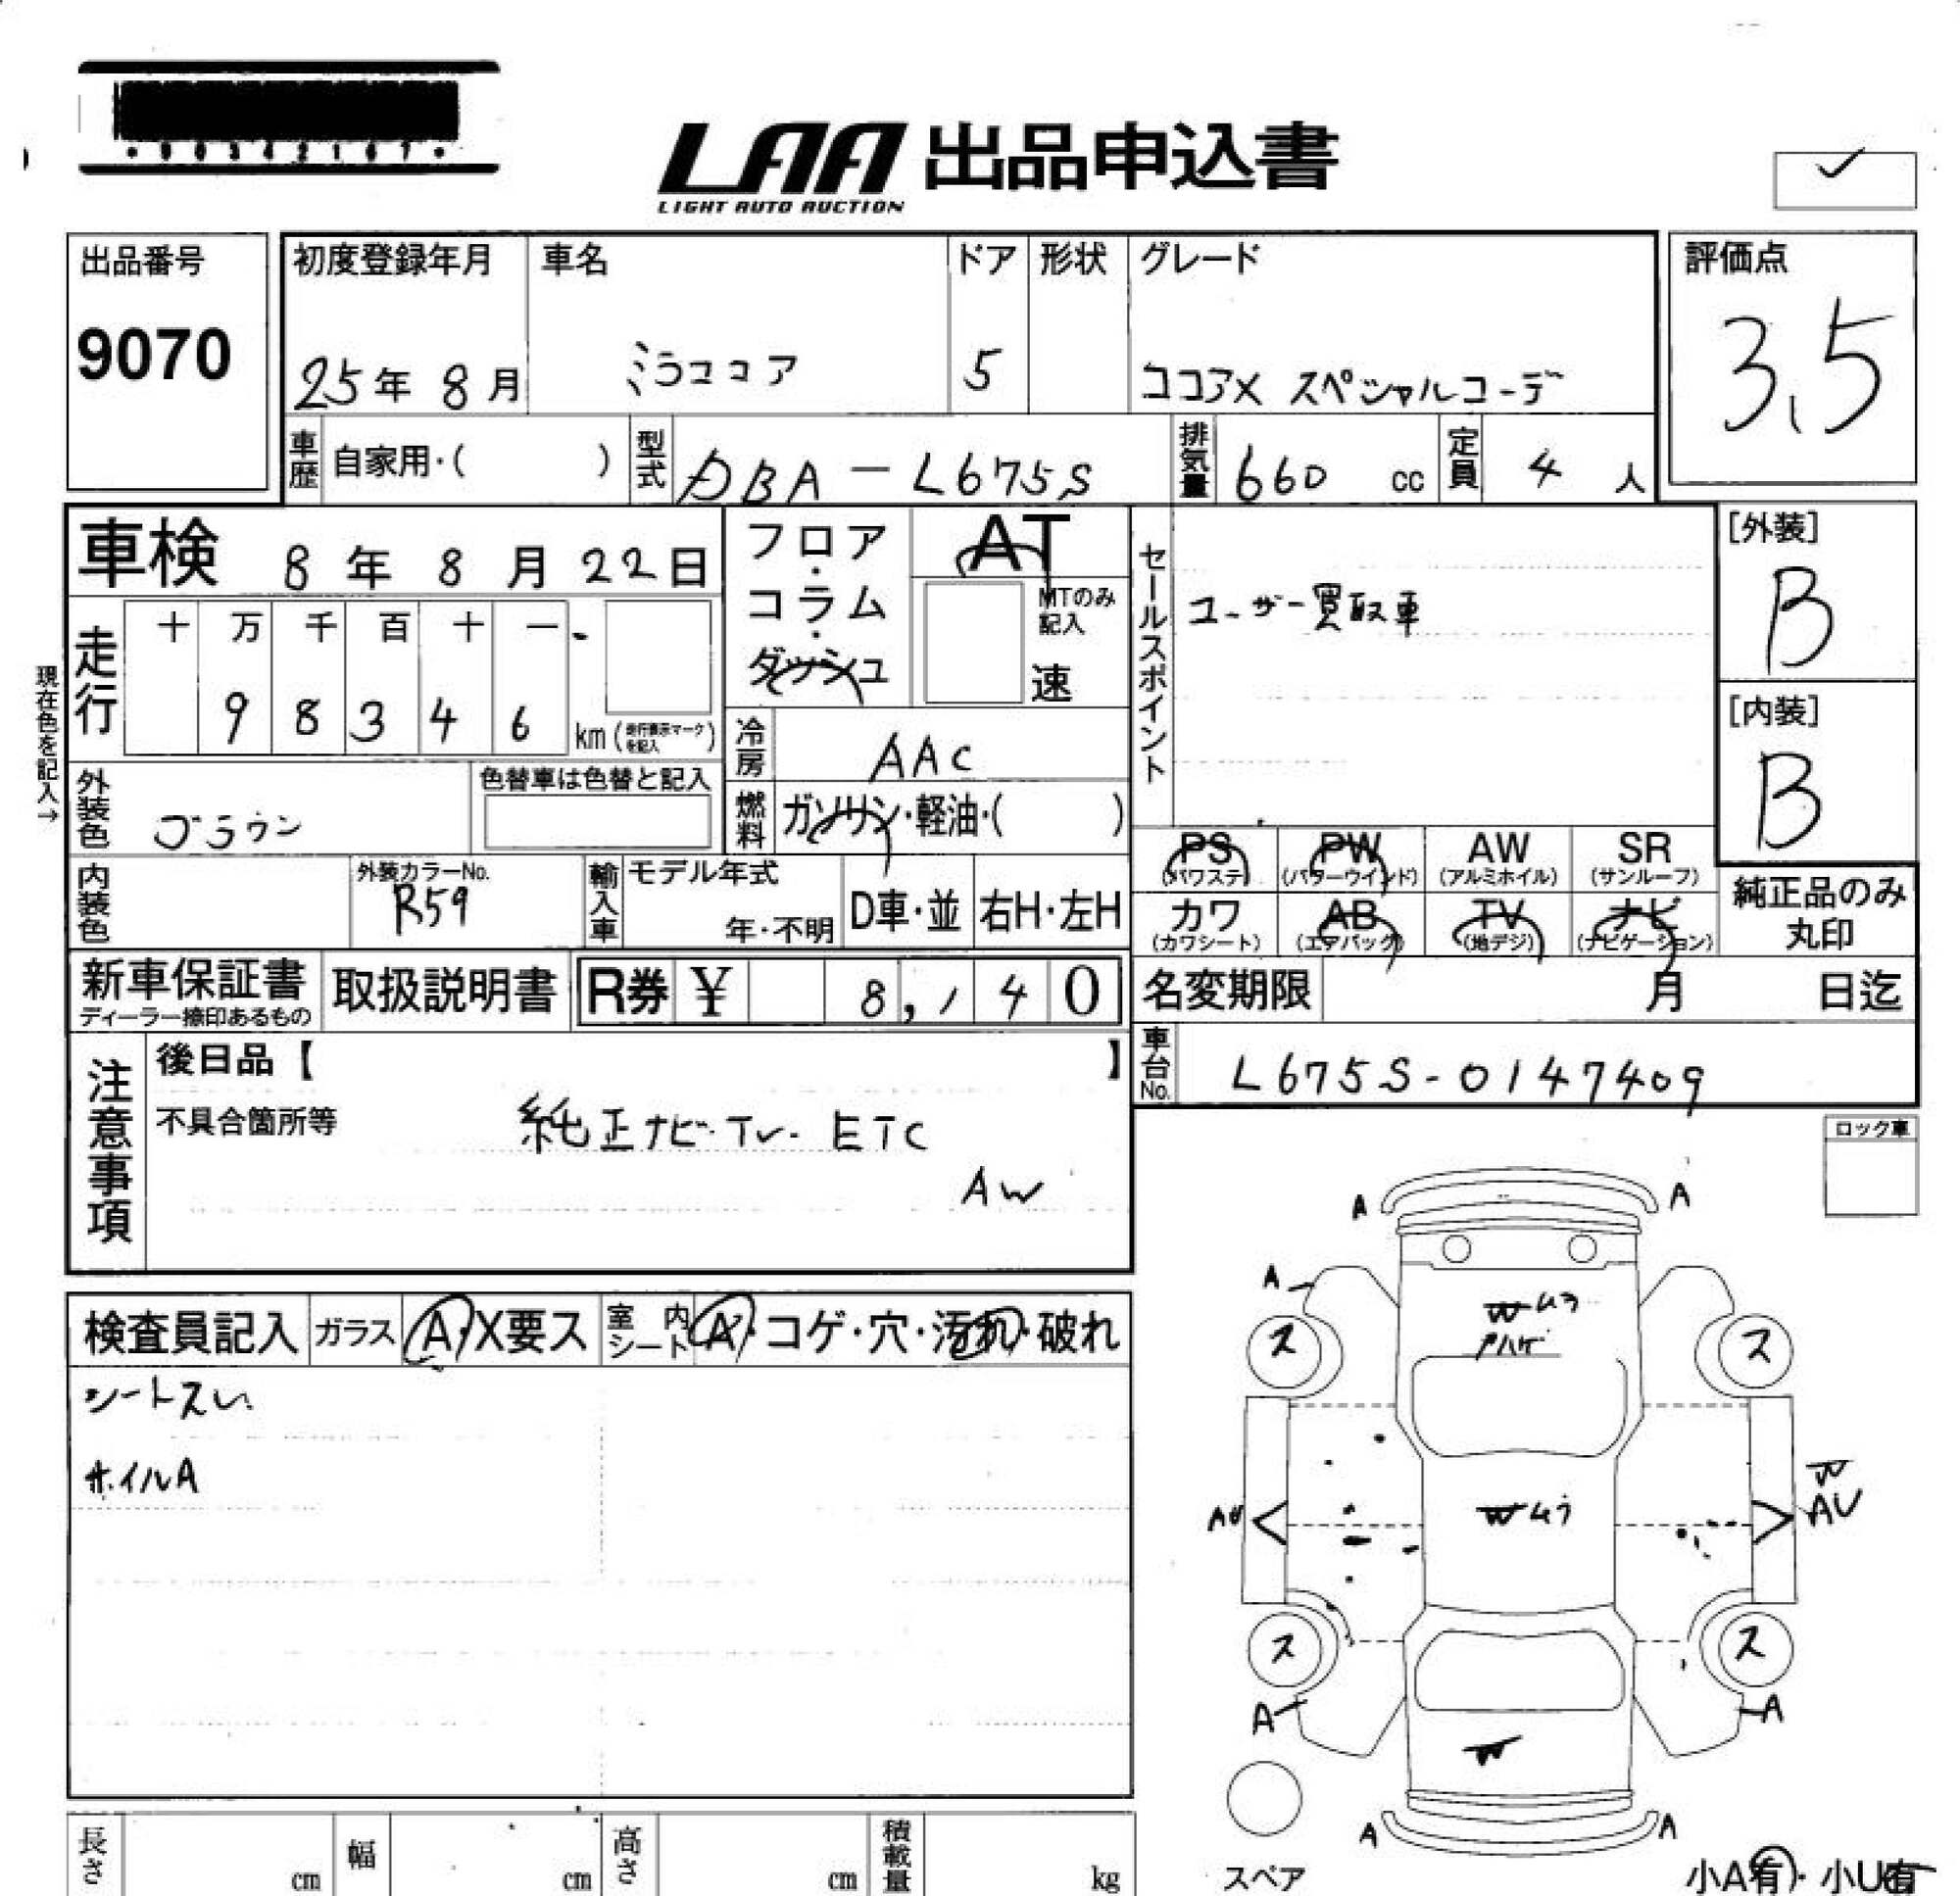 ・90342167・
LAA 出品申込書
LIGHT AUTO AUCTION
✓
出品番号
9070
初度登録年月 車名 ドア 形状 グレード
25年 8月 ミラココア 5 ココアX スペシャルコーデ
評価点
3.5
車歴 自家用・( ) 型式 DBA-L675S 排気量 660 cc 定員 4 人
車検 8年 8月 22日
フロア・コラム・ダッシュ
AT
MTのみ記入
速
セールスポイント
ユーザー買取車
[外装]
B
[内装]
B
現在色を記入→
走行
十 万 千 百 十 一
9 8 3 4 6 km (走行表示マークを記入)
冷房 AAC
外装色 ブラウン
色替車は色替と記入
燃料 ガソリン・軽油・( )
PS (パワステ) PW (パワーウインド) AW (アルミホイル) SR (サンルーフ)
カワ (カワシート) AB (エアバッグ) TV (地デジ) ナビ (ナビゲーション)
純正品のみ丸印
内装色 外装カラーNo. R59 輸入車 モデル年式 年・不明 D車・並 右H・左H
新車保証書 ディーラー捺印あるもの 取扱説明書 R券 ¥ 8,140
名変期限 月 日迄
注意事項
後日品【 】
不具合箇所等
純正ナビ・TV・ETC
AW
車台No. L675S-0147409
ロック車
検査員記入 ガラス A・X要ス 室内シート A・コゲ・穴・汚れ・破れ
シートスレ
ホイルA
A A
A
Wムラ
アハゲ
ス ス
W
AU Wムラ AU
ス ス
A A
W
A A
スペア
小A有・小U有
長さ cm 幅 cm 高さ cm 積載量 kg